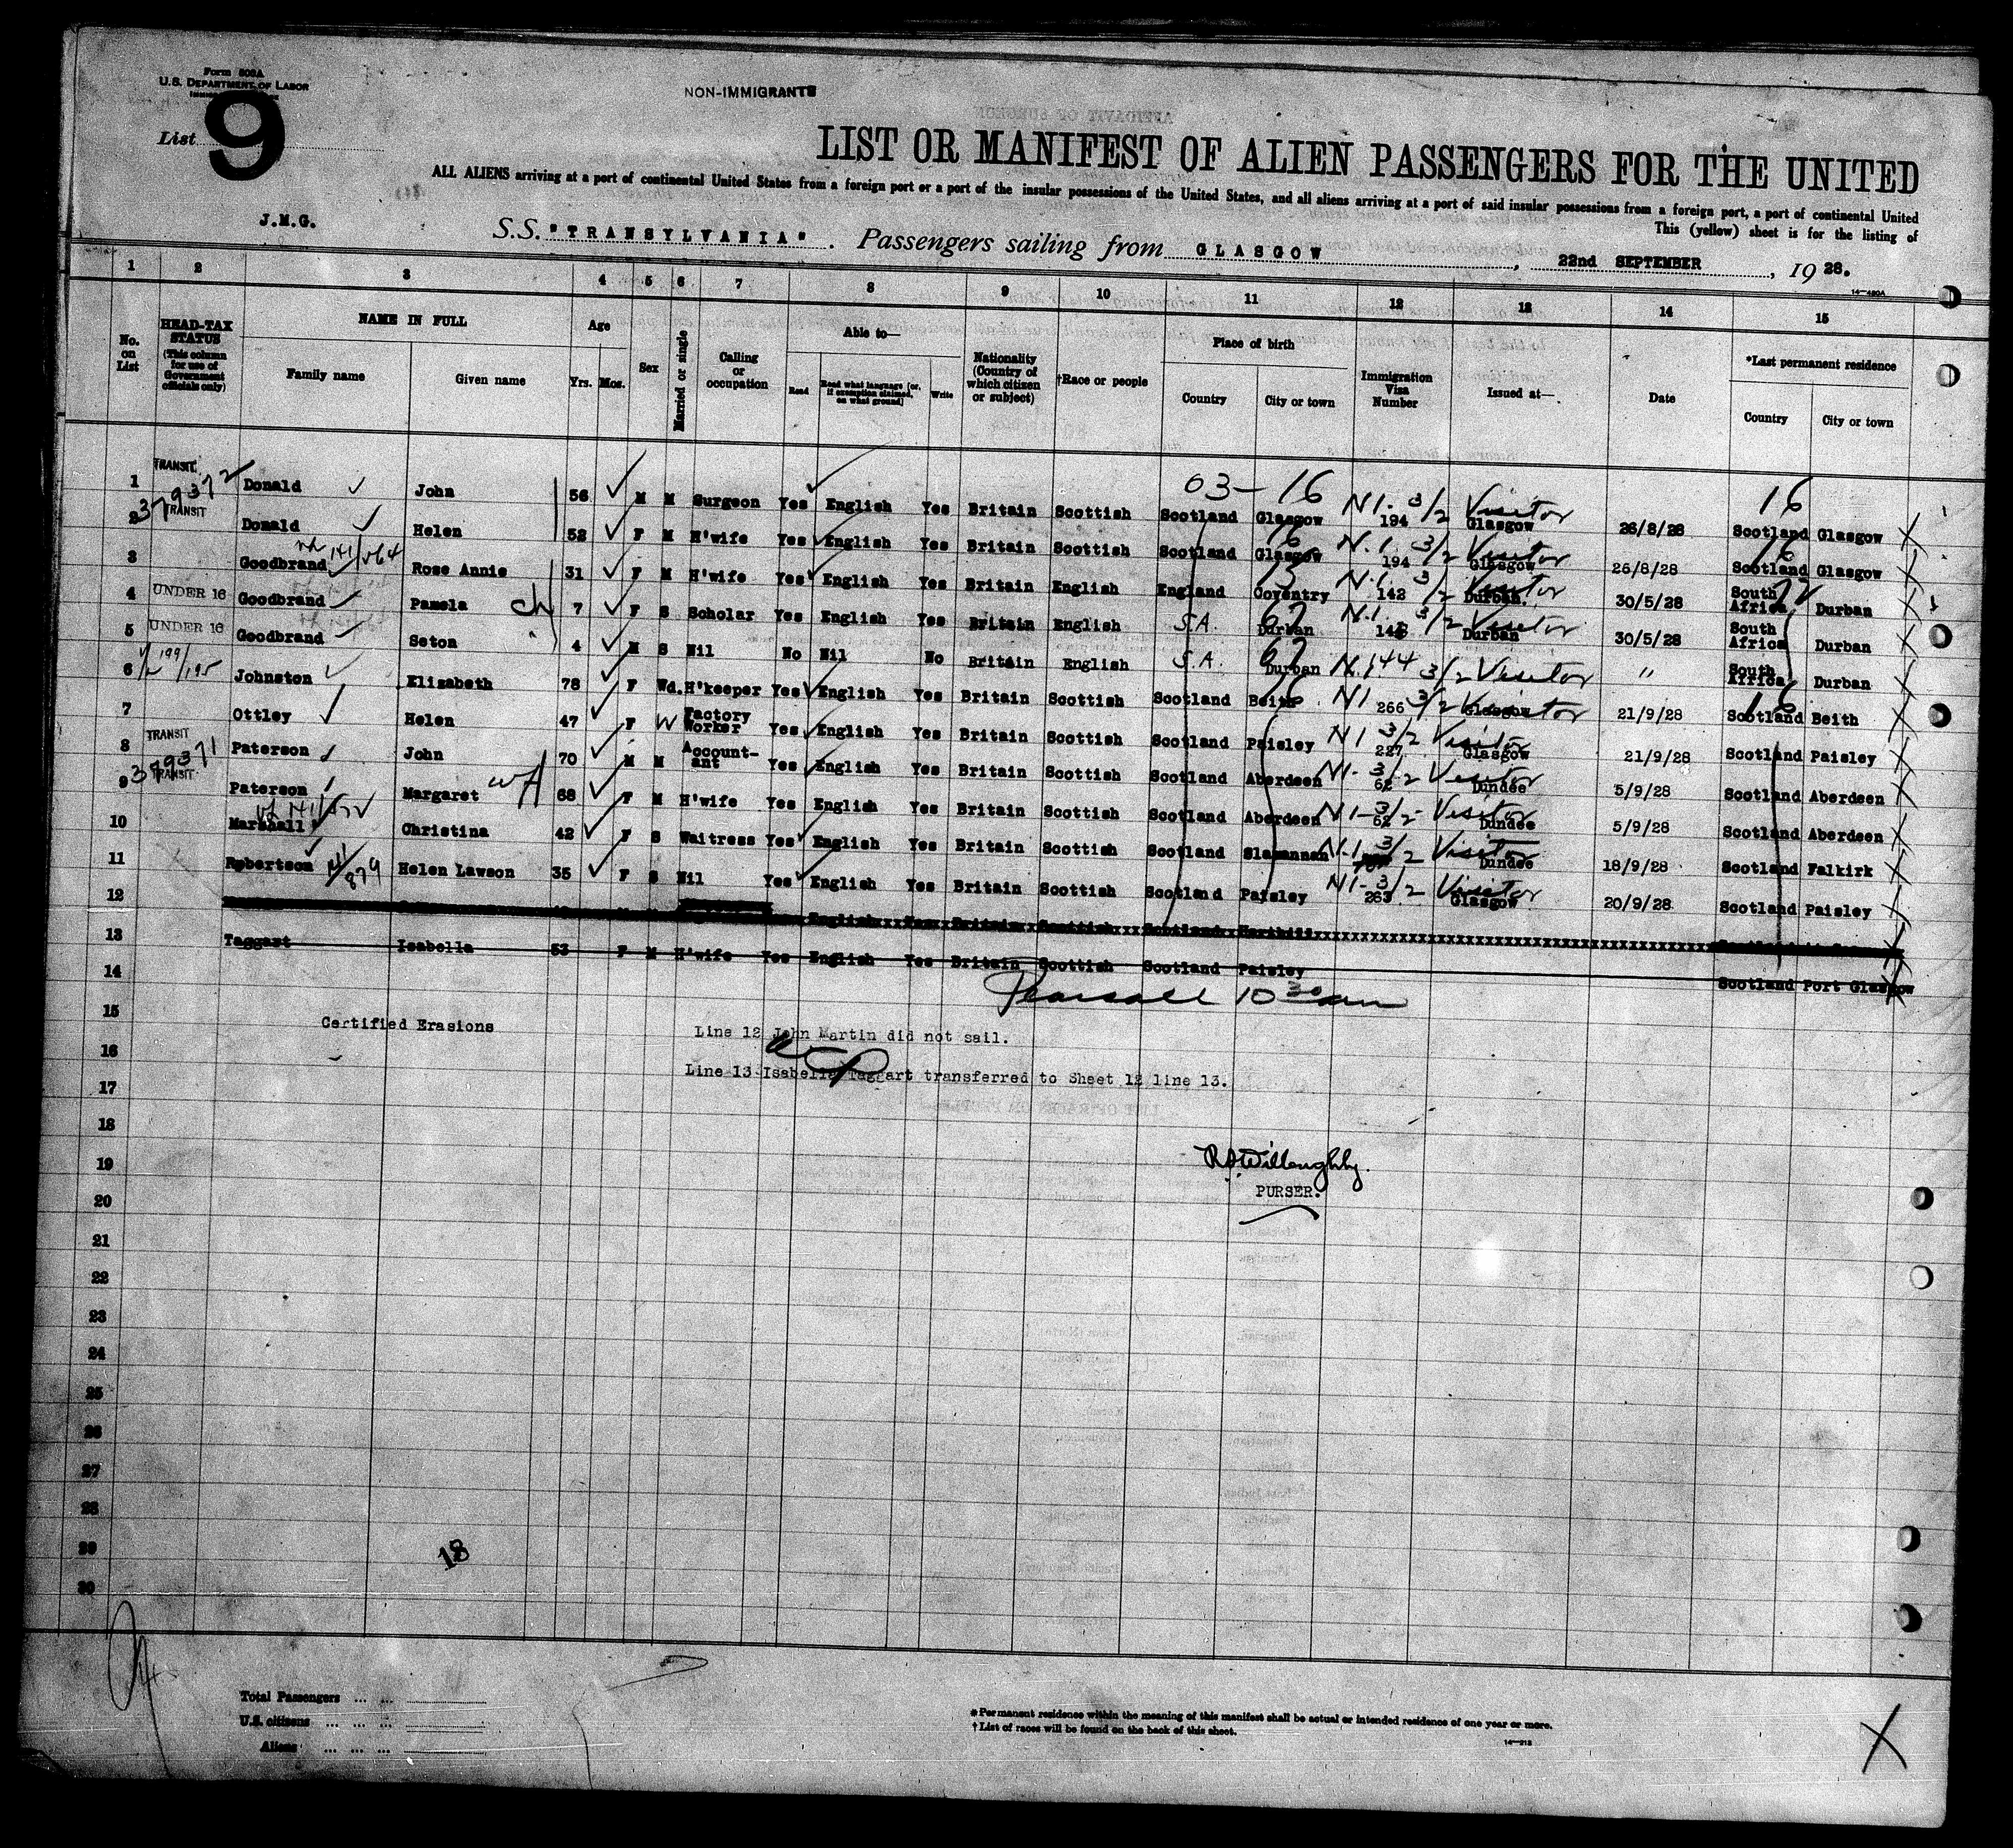 Form 500A
U.S. DEPARTMENT OF LABOR
List 9
NON-IMMIGRANTS
LIST OR MANIFEST OF ALIEN PASSENGERS FOR THE UNITED
ALL ALIENS arriving at a port of continental United States from a foreign port or a port of the insular possessions of the United States, and all aliens arriving at a port of said insular possessions from a foreign port, a port of continental United
This (yellow) sheet is for the listing of
J.M.G.
S.S. "TRANSYLVANIA". Passengers sailing from GLASGOW, 22nd SEPTEMBER, 1928.
14-480A
1 2 3 4 5 6 7 8 9 10 11 12 13 14 15
No. on List
HEAD-TAX STATUS (This column for use of Government officials only)
NAME IN FULL Family name Given name
Age Yrs. Mos.
Sex
Married or single
Calling or occupation
Able to— Read Read what language [or, if exemption claimed, on what ground] Write
Nationality (Country of which citizen or subject)
†Race or people
Place of birth Country City or town
Immigration Visa Number
Issued at—
Date
*Last permanent residence Country City or town
03-16 16
1 TRANSIT 379372 Donald John 56 M M Surgeon Yes English Yes Britain Scottish Scotland Glasgow N1. 3/2 194 Visitor Glasgow 26/8/28 Scotland Glasgow X
2 TRANSIT Donald Helen 52 F M H'wife Yes English Yes Britain Scottish Scotland Glasgow 16 N.1. 3/2 194 Visitor Glasgow 26/8/28 Scotland Glasgow 16 X
3 Goodbrand Rose Annie 31 F M H'wife Yes English Yes Britain English England Coventry N.1. 3/2 142 Visitor Durban. 30/5/28 South Africa Durban X
4 UNDER 16 Goodbrand Pamela ch 7 F S Scholar Yes English Yes Britain English S.A. Durban 67 N.1. 3/2 Visitor Durban 30/5/28 South Africa Durban X
5 UNDER 16 Goodbrand Seton 4 M S Nil No Nil No Britain English S.A. Durban 67 N.1. 144 3/2 Visitor " South Africa Durban X
6 199/195 Johnston Elizabeth 78 F Wd. H'keeper Yes English Yes Britain Scottish Scotland Beith 16 N1 266 3/2 Visitor Glasgow 21/9/28 Scotland Beith 16 X
7 Ottley Helen 47 F W Factory Worker Yes English Yes Britain Scottish Scotland Paisley N1 3/2 227 Visitor Glasgow 21/9/28 Scotland Paisley X
8 TRANSIT 379371 Paterson John 70 M M Accountant Yes English Yes Britain Scottish Scotland Aberdeen N1- 3/2 62 Visitor Dundee 5/9/28 Scotland Aberdeen X
9 TRANSIT Paterson Margaret wf 68 F M H'wife Yes English Yes Britain Scottish Scotland Aberdeen N1-3/2- 62 Visitor Dundee 5/9/28 Scotland Aberdeen X
10 Marshall Christina 42 F S Waitress Yes English Yes Britain Scottish Scotland Slamannan N.1. 3/2 Visitor Dundee 18/9/28 Scotland Falkirk X
11 Robertson 141/879 Helen Lawson 35 F S Nil Yes English Yes Britain Scottish Scotland Paisley N1- 3/2 263 Visitor Glasgow 20/9/28 Scotland Paisley X
12 English Yes Britain Scottish Scotland Harthill
13 Taggart Isabella 53 F M H'wife Yes English Yes Britain Scottish Scotland Paisley Scotland Port Glasgow
14 Pearsall 10 30 am
15 Certified Erasions Line 12 John Martin did not sail.
16 Line 13 Isabella Taggart transferred to Sheet 12 line 13.
17
18
19 R.D. Willoughby.
20 PURSER.
21
22
23
24
25
26
27
28
29 18
30
Total Passengers ... ...
U.S. citizens ... ... ...
Aliens ... ... ...
*Permanent residence within the meaning of this manifest shall be actual or intended residence of one year or more.
†List of races will be found on the back of this sheet.
14-212
X